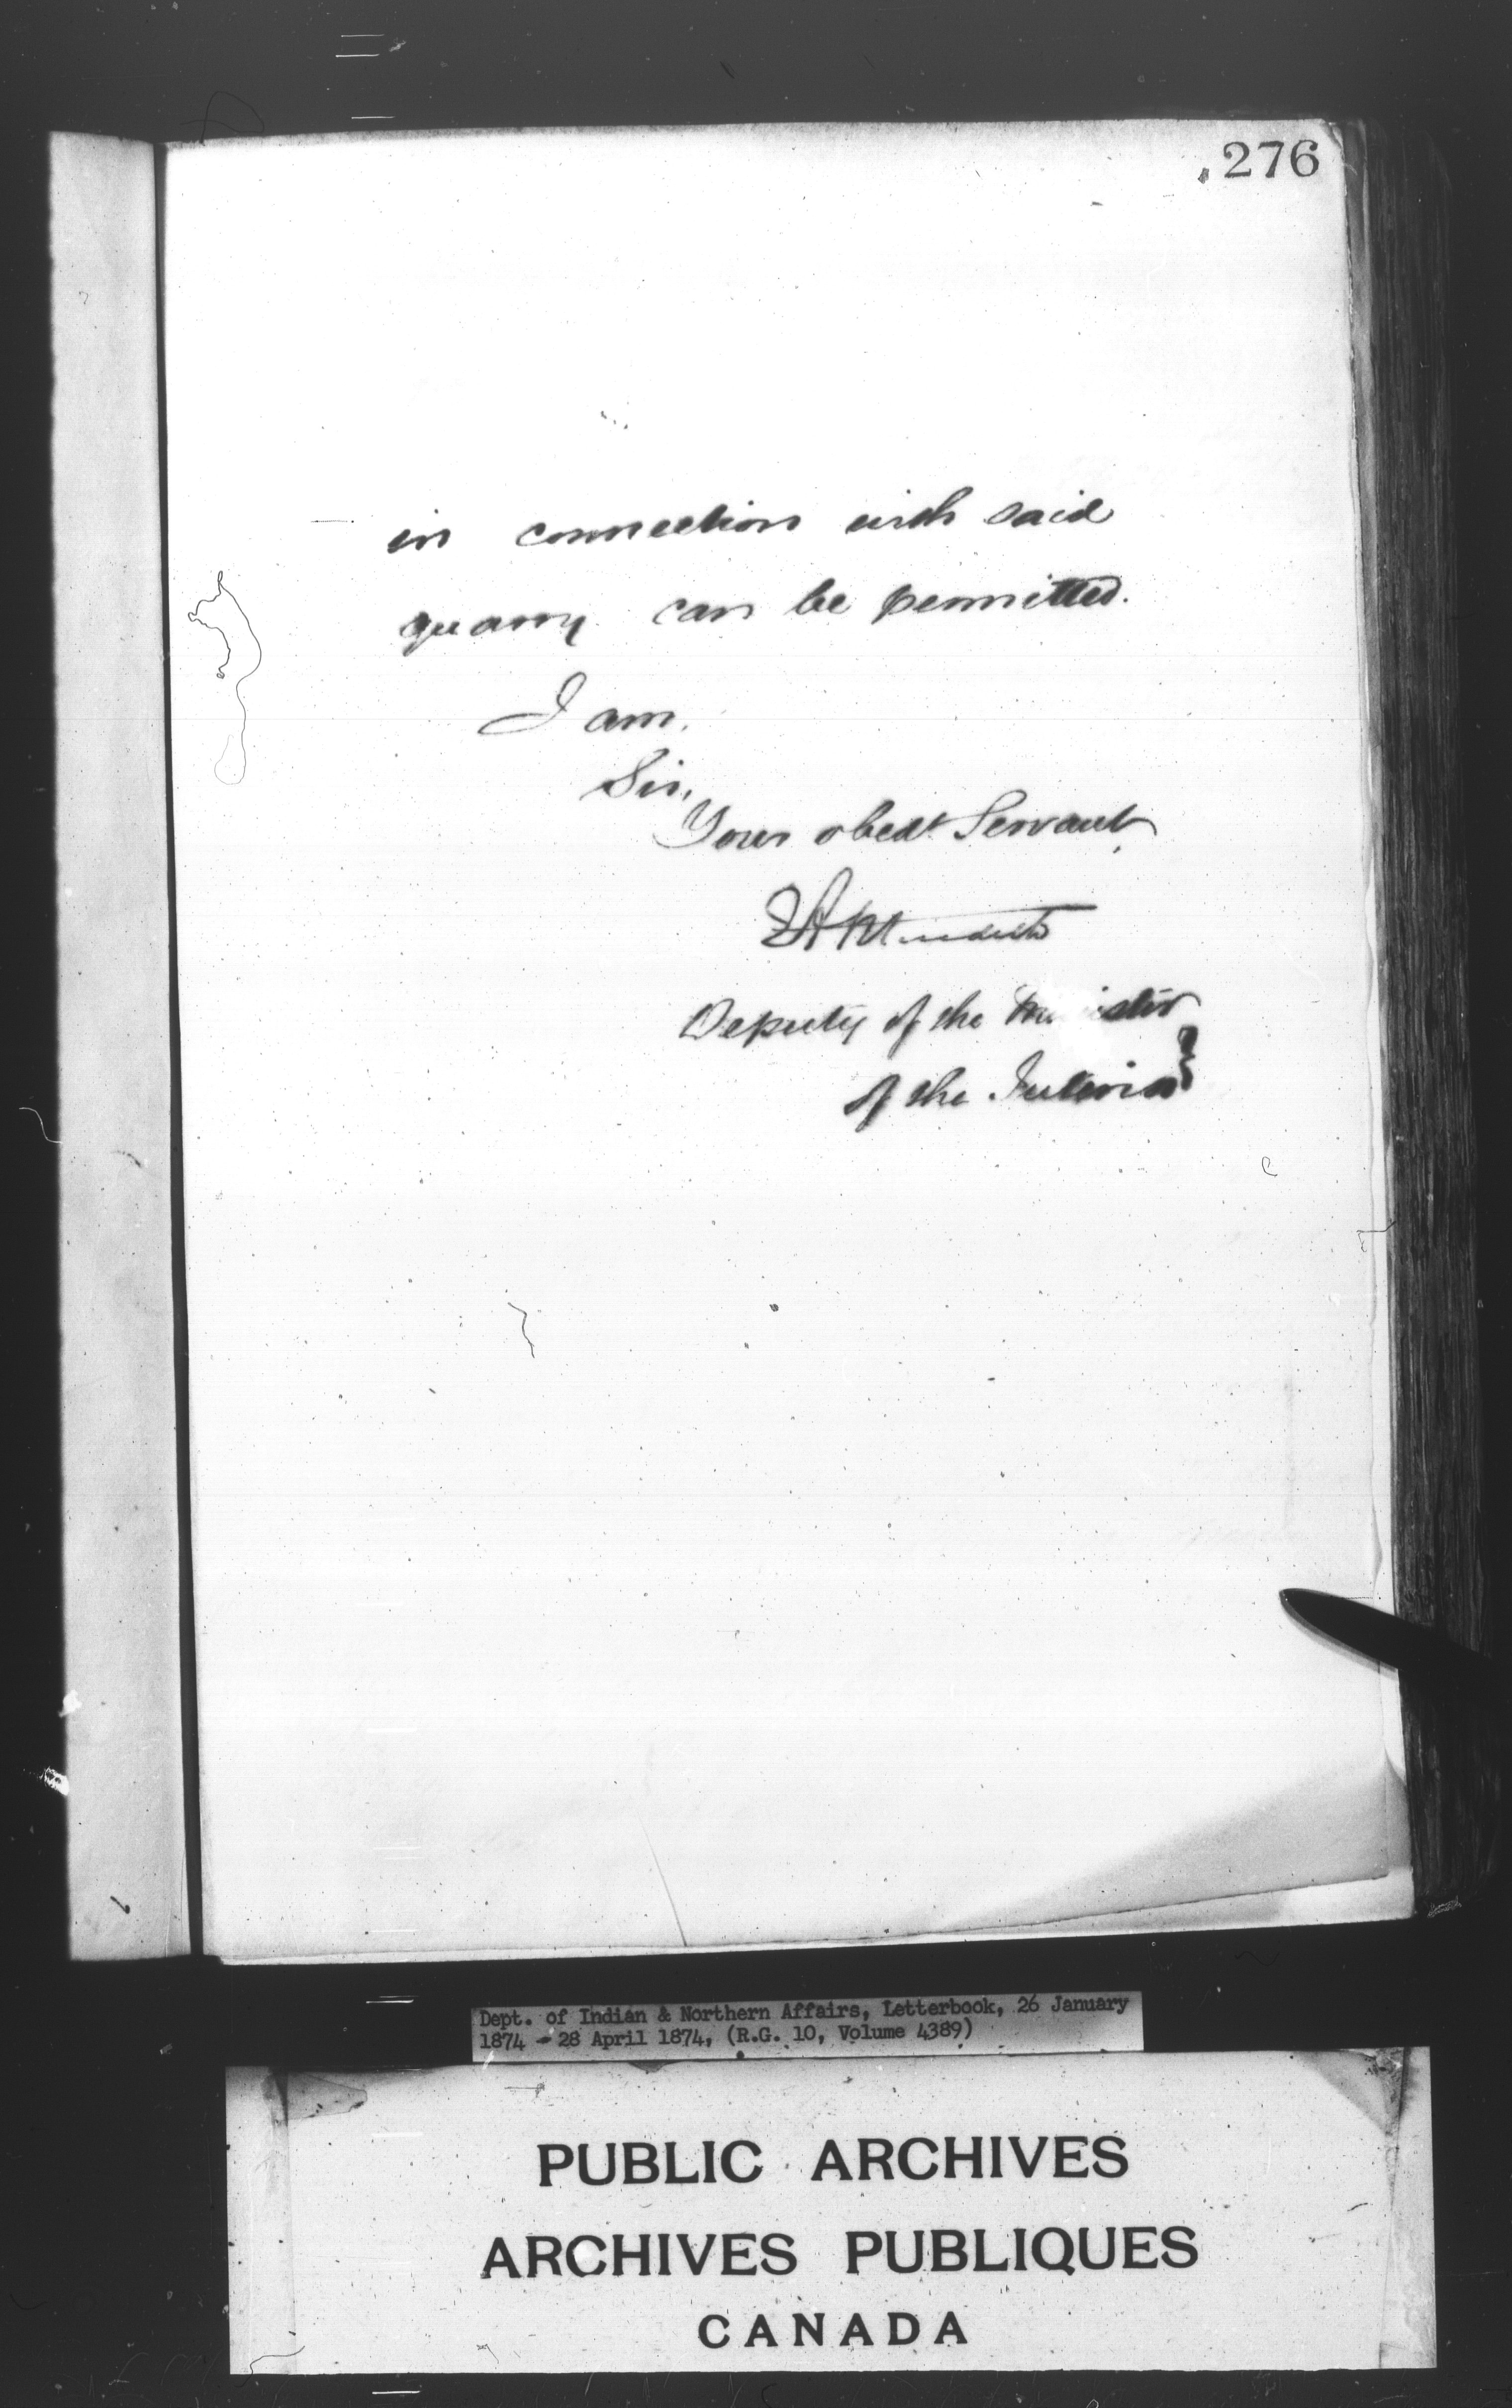 276
in connection with said
quarry can be permitted.
I am,
Sir,
Your obedt Servant,
EAMeredith
Deputy of the Minister
of the Interior
Dept. of Indian & Northern Affairs, Letterbook, 26 January
1874 - 28 April 1874, (R.G. 10, Volume 4389)
PUBLIC ARCHIVES
ARCHIVES PUBLIQUES
CANADA